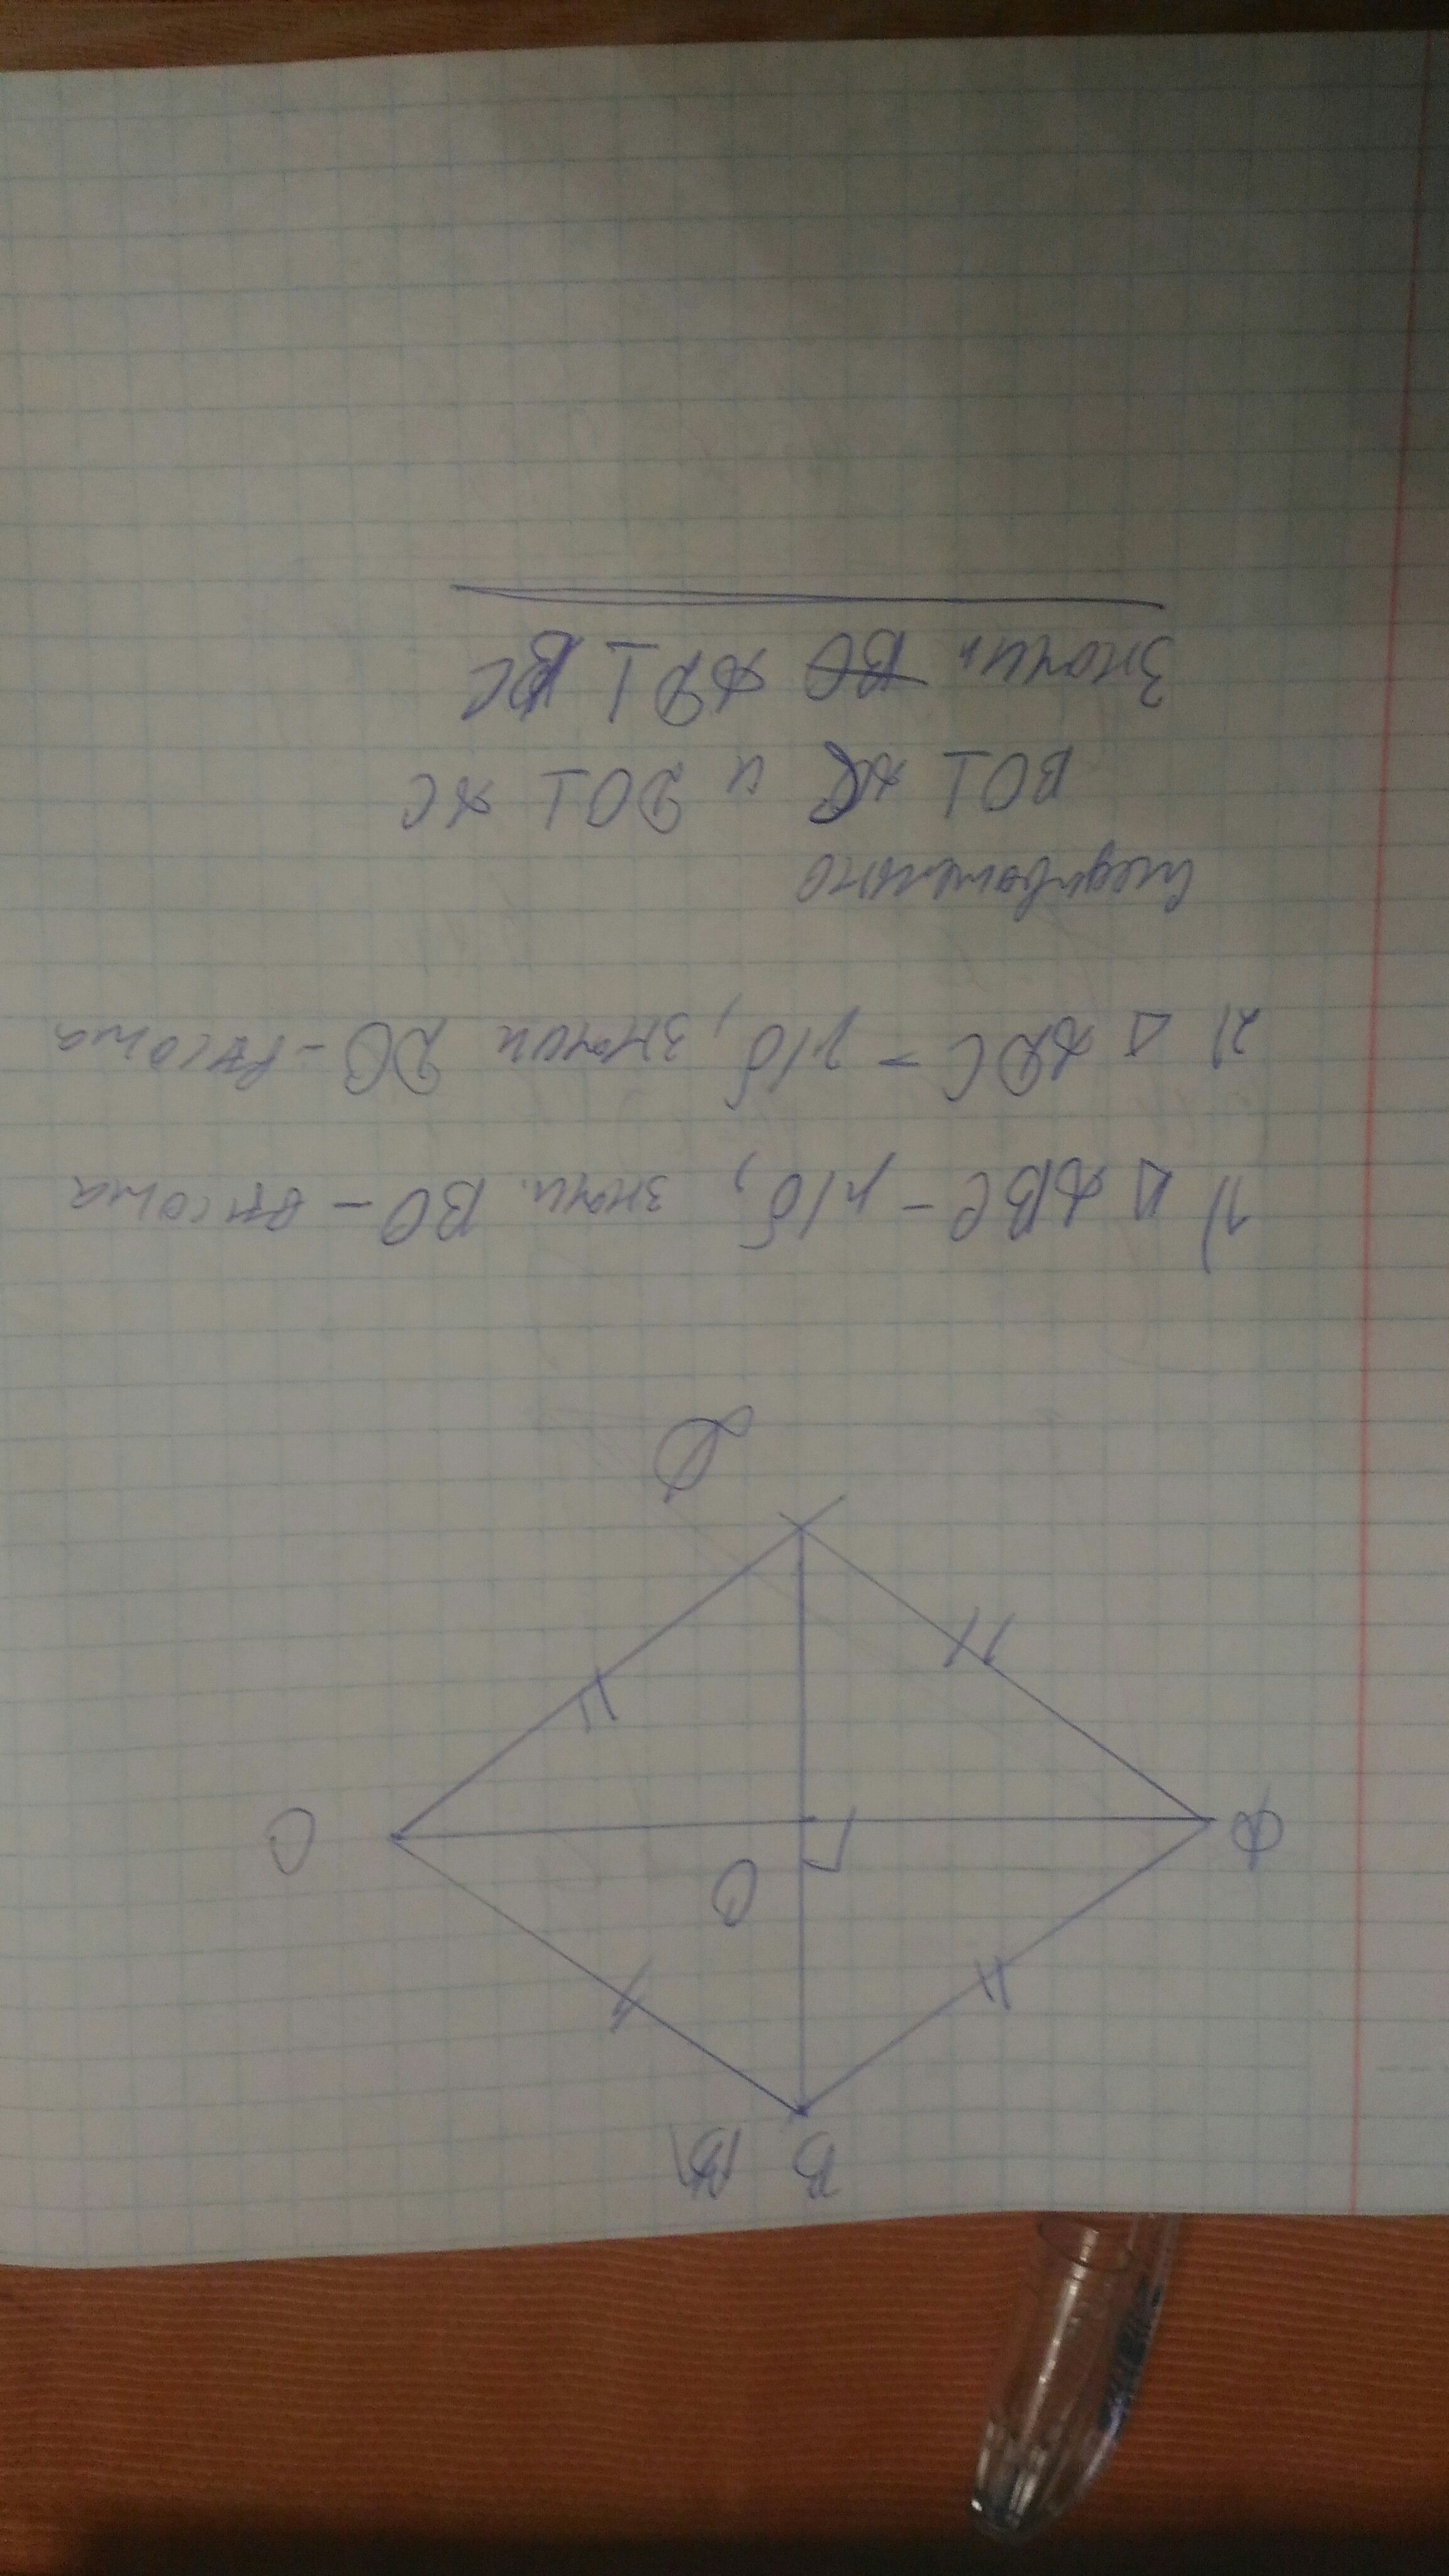 B B
A
O
C
D
1) △ ABC - р/б, значи. BO - высота
2) △ ADC - р/б, значи DO - высота
Следовательно
BO ⊥ AC и DO ⊥ AC
Значит BO AD ⊥ BC